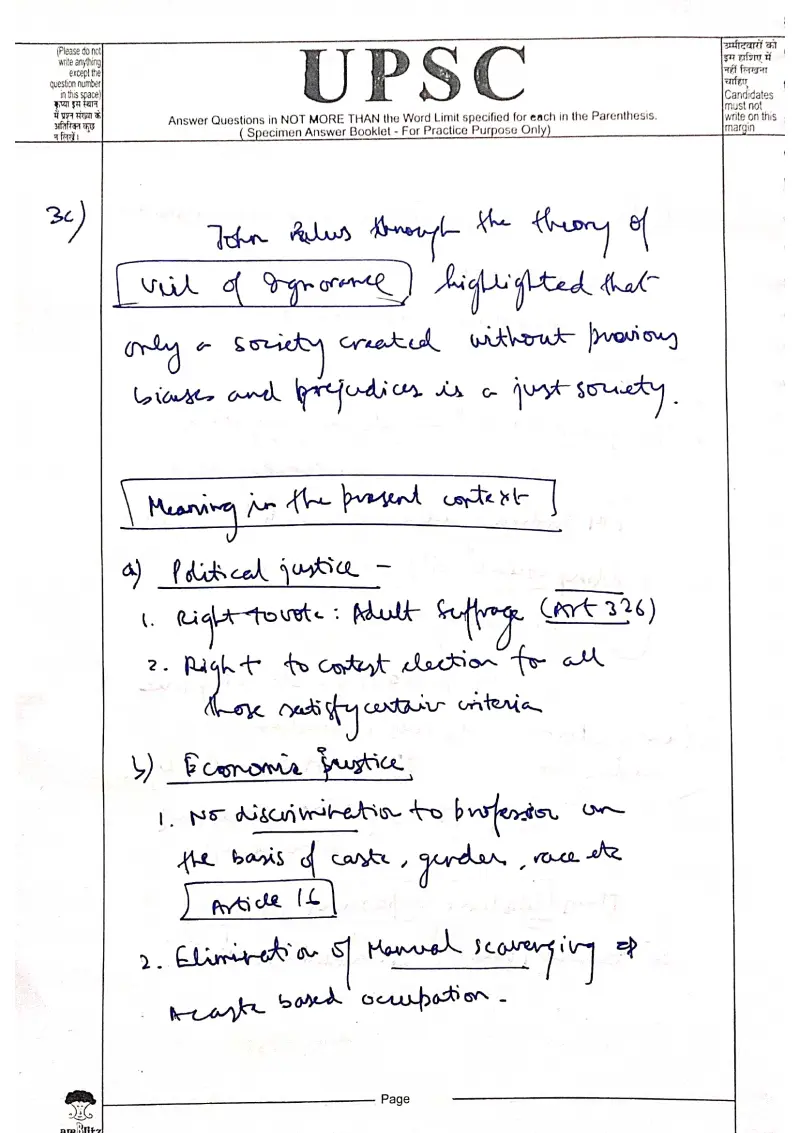 (Please do not
write anything
except the
question number
in this space)
कृपया इस स्थान
में प्रश्न संख्या के
अतिरिक्त कुछ
न लिखें।
UPSC
Answer Questions in NOT MORE THAN the Word Limit specified for each in the Parenthesis.
( Specimen Answer Booklet - For Practice Purpose Only)
उम्मीदवारों को
इस हाशिए में
नहीं लिखना
चाहिए
Candidates
must not
write on this
margin
3c)
John through the theory of
Veil of Ignorance highlighted that
only a society created without previous
biases and prejudices is a just society.
Meaning in the present context
a) Political justice -
1. Right to vote : Adult Suffrage (Art 326)
2. Right to contest election for all
those satisfy certain criteria
b) Economic justice
1. No discrimination to profession on
the basis of caste, gender, race etc
Article 16
2. Elimination of Manual scavenging
A caste based occupation -
Page